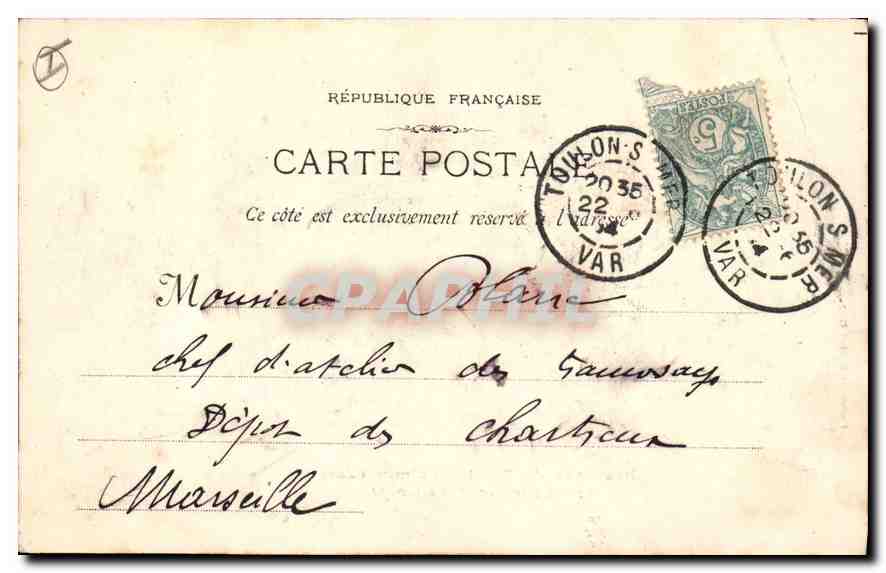 I
RÉPUBLIQUE FRANÇAISE
CARTE POSTALE
Ce côté est exclusivement réservé à l'adresse
POSTES 5c
TOULON S MER 20 35 22 4 VAR
TOULON S MER 20 35 22 4 VAR
GRAPHIL
Monsieur
chef d'atelier des
Dépot des Chartreux
Marseille